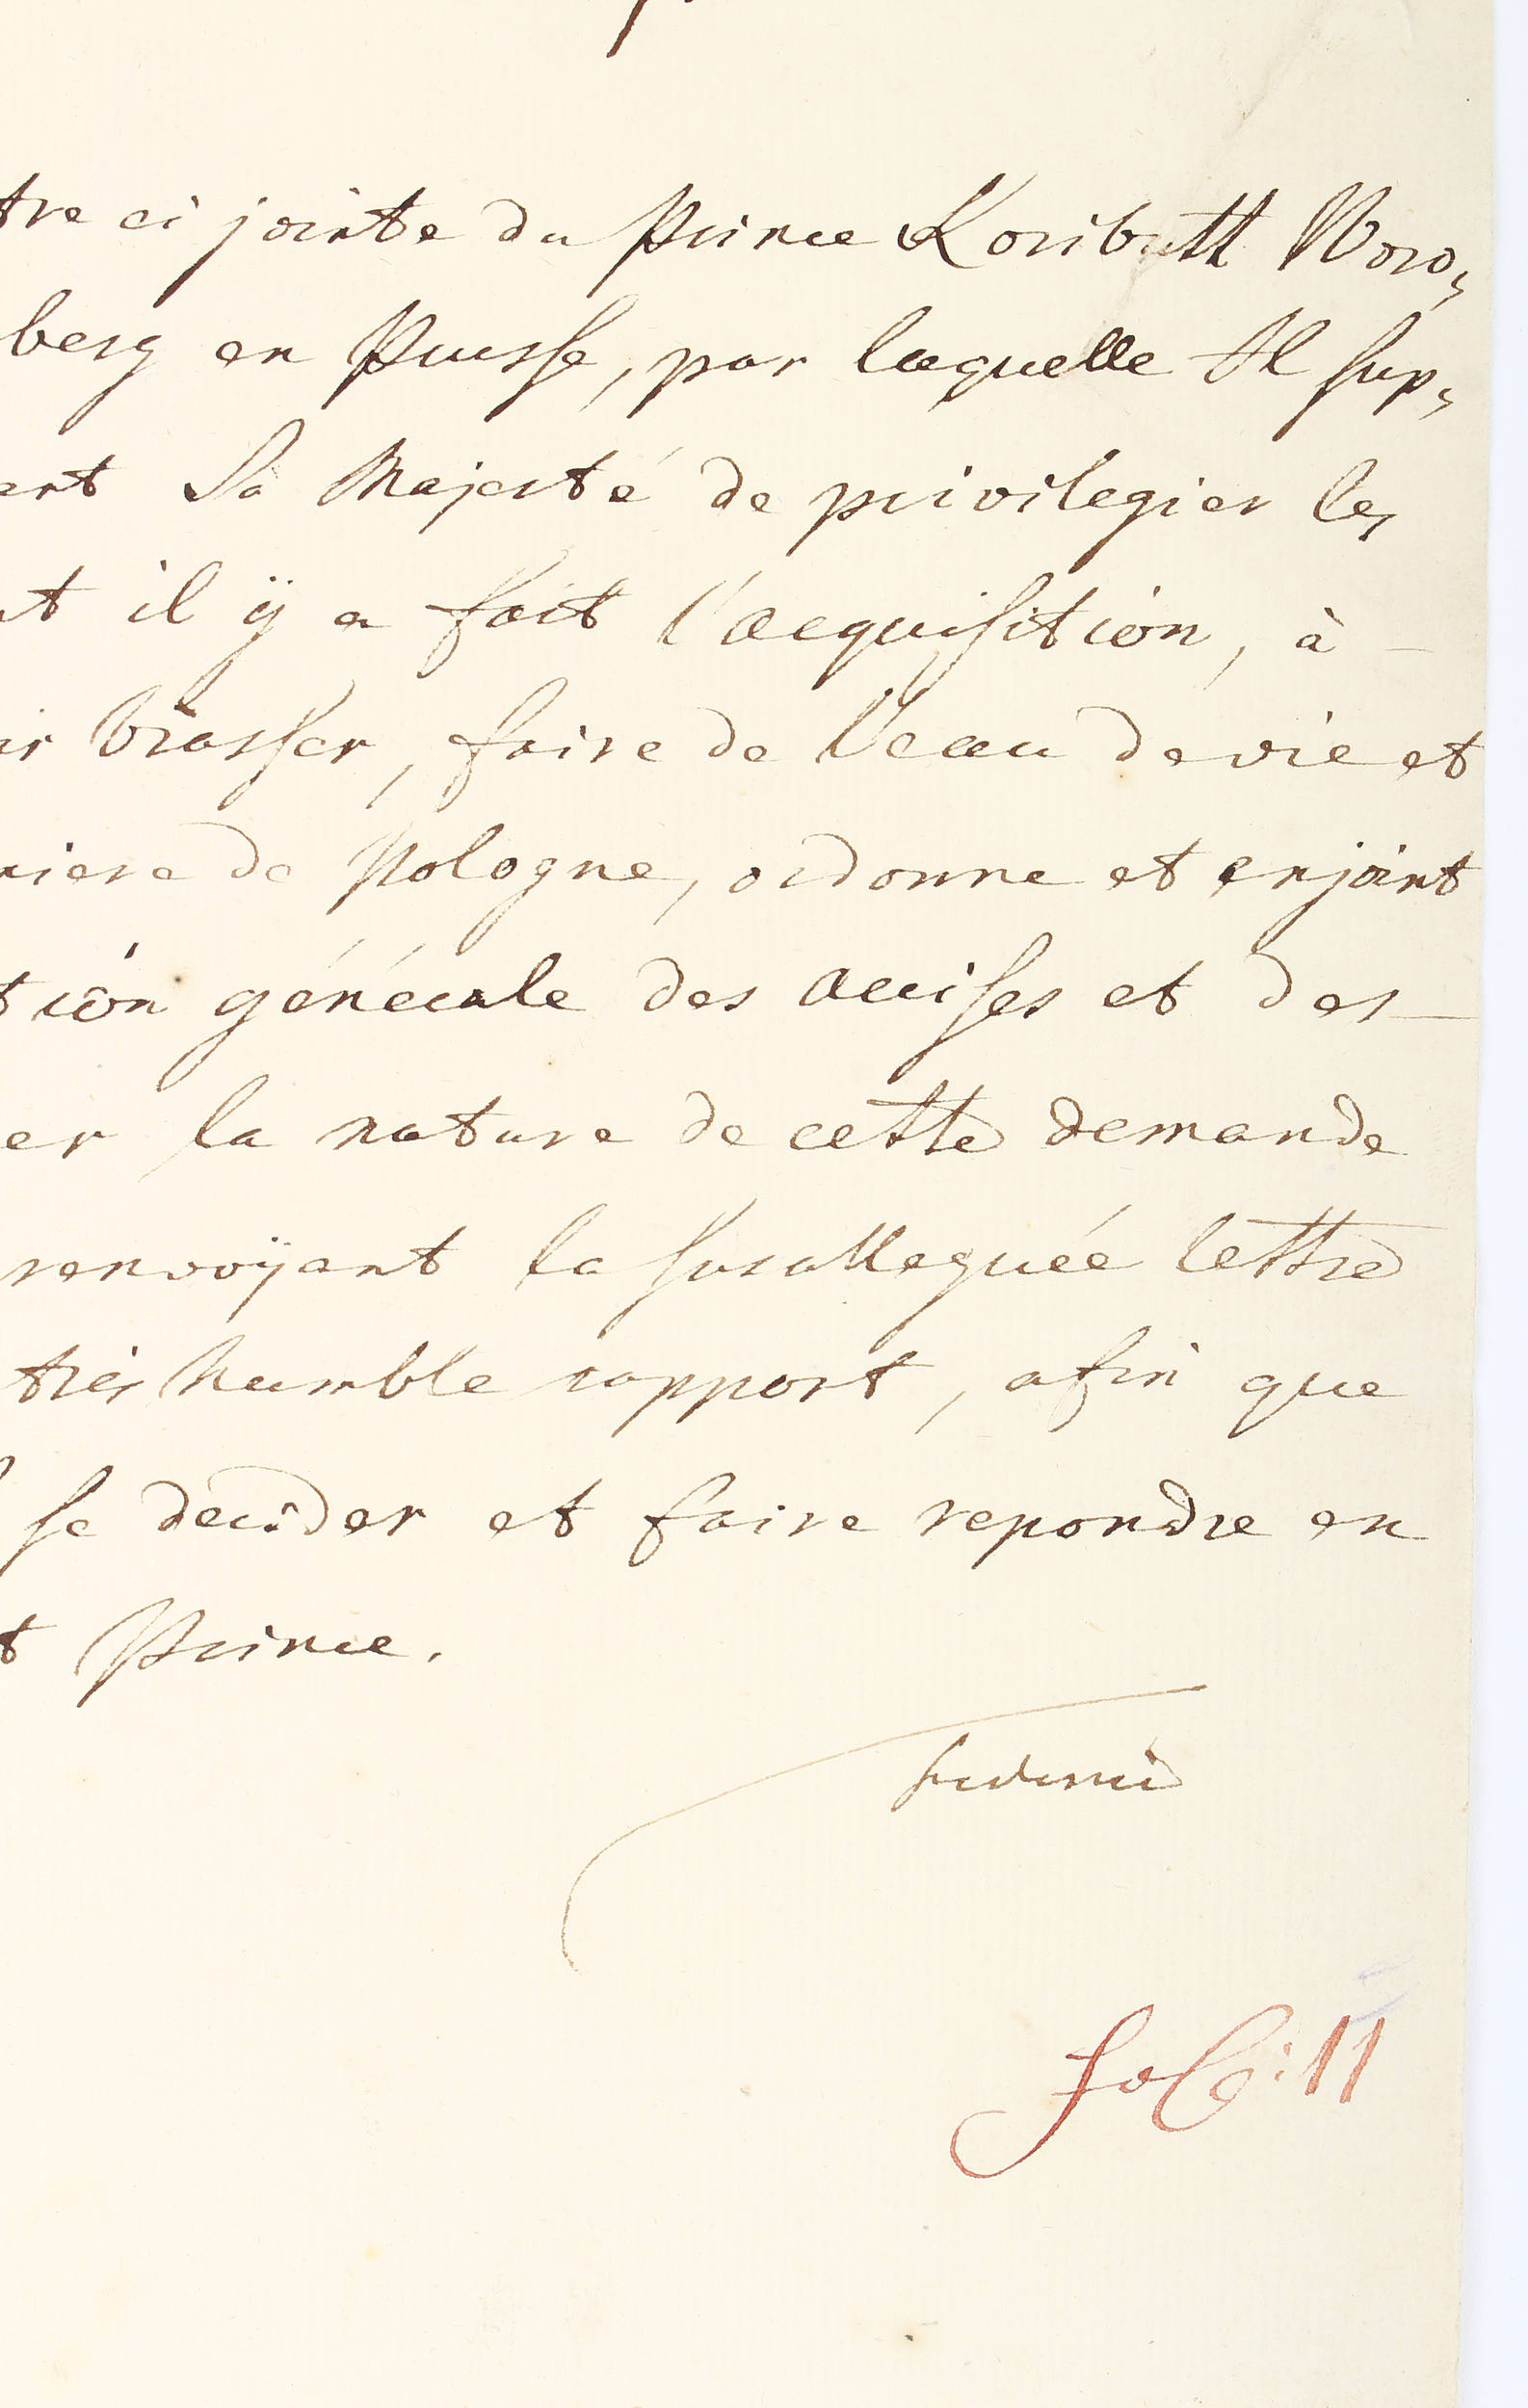 tre ci jointe du Prince Koributt Woro,
berg en Prusse, par laquelle Il sup,
ant Sa Majesté de privilegier les
nt il ÿ a fait l'acquisition, à
ir brasser, faire de l'eau de vie et
niere de Pologne, ordonne et enjoint
tion générale des accises et des
er la nature de cette demande
renvoÿant la susalleguée lettre
très humble rapport, afin que
se decider et faire repondre en
t Prince.
Federic